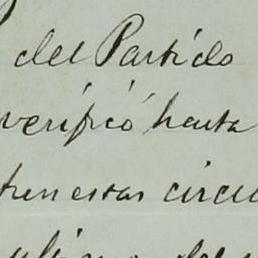 del Partido
verificó hasta
tren estas circu
del